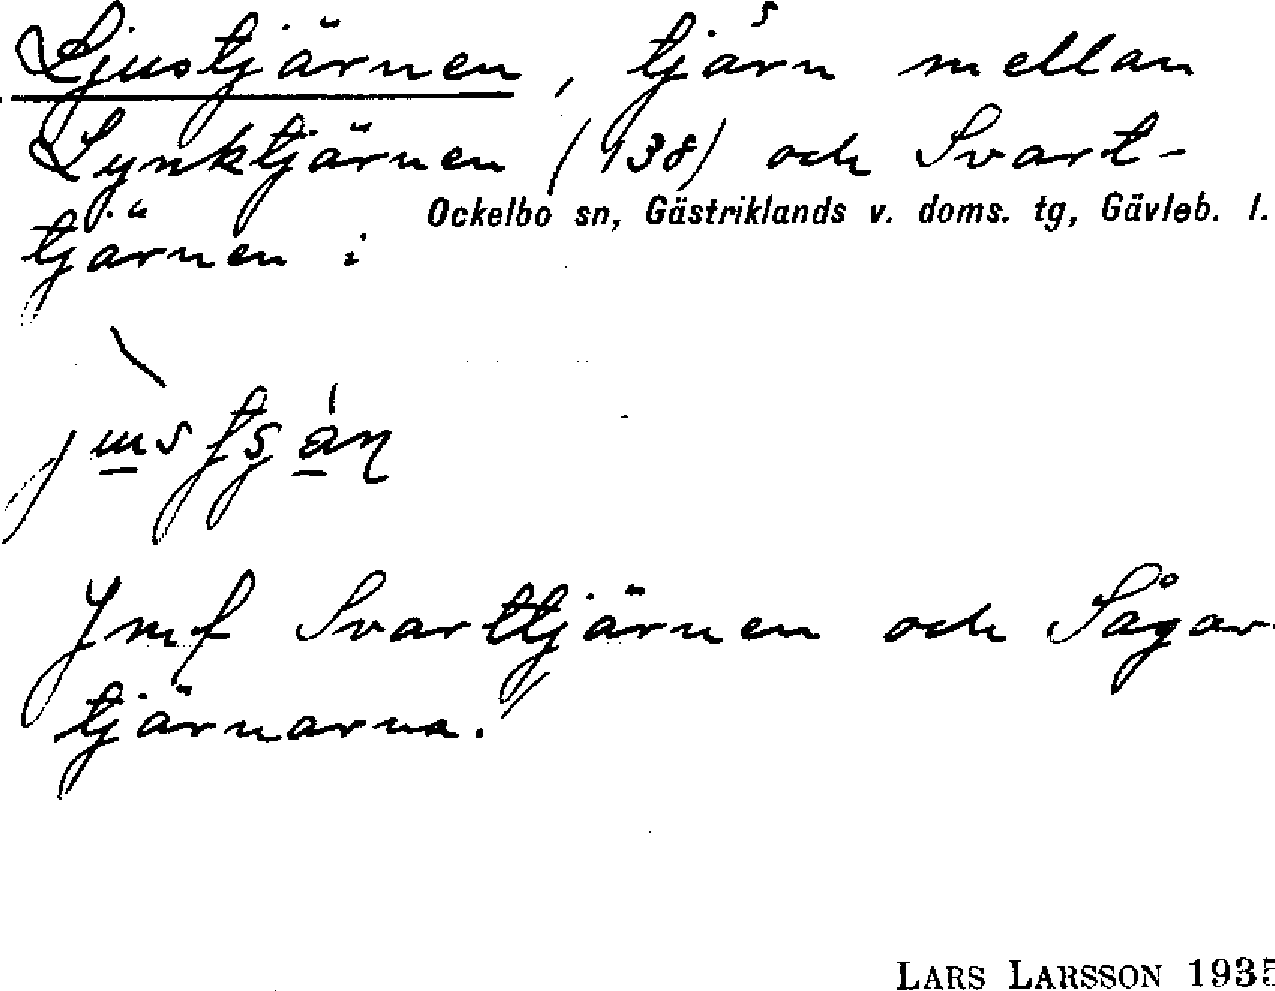 Ljustjärnen, tjärn mellan
Lynktjärnen (138) och Svart-
tjärnen i Ockelbo sn, Gästriklands v. doms. tg, Gävleb. l.
Jmf Svarttjärnen och Sågar
tjärnarna.
LARS LARSSON 1935